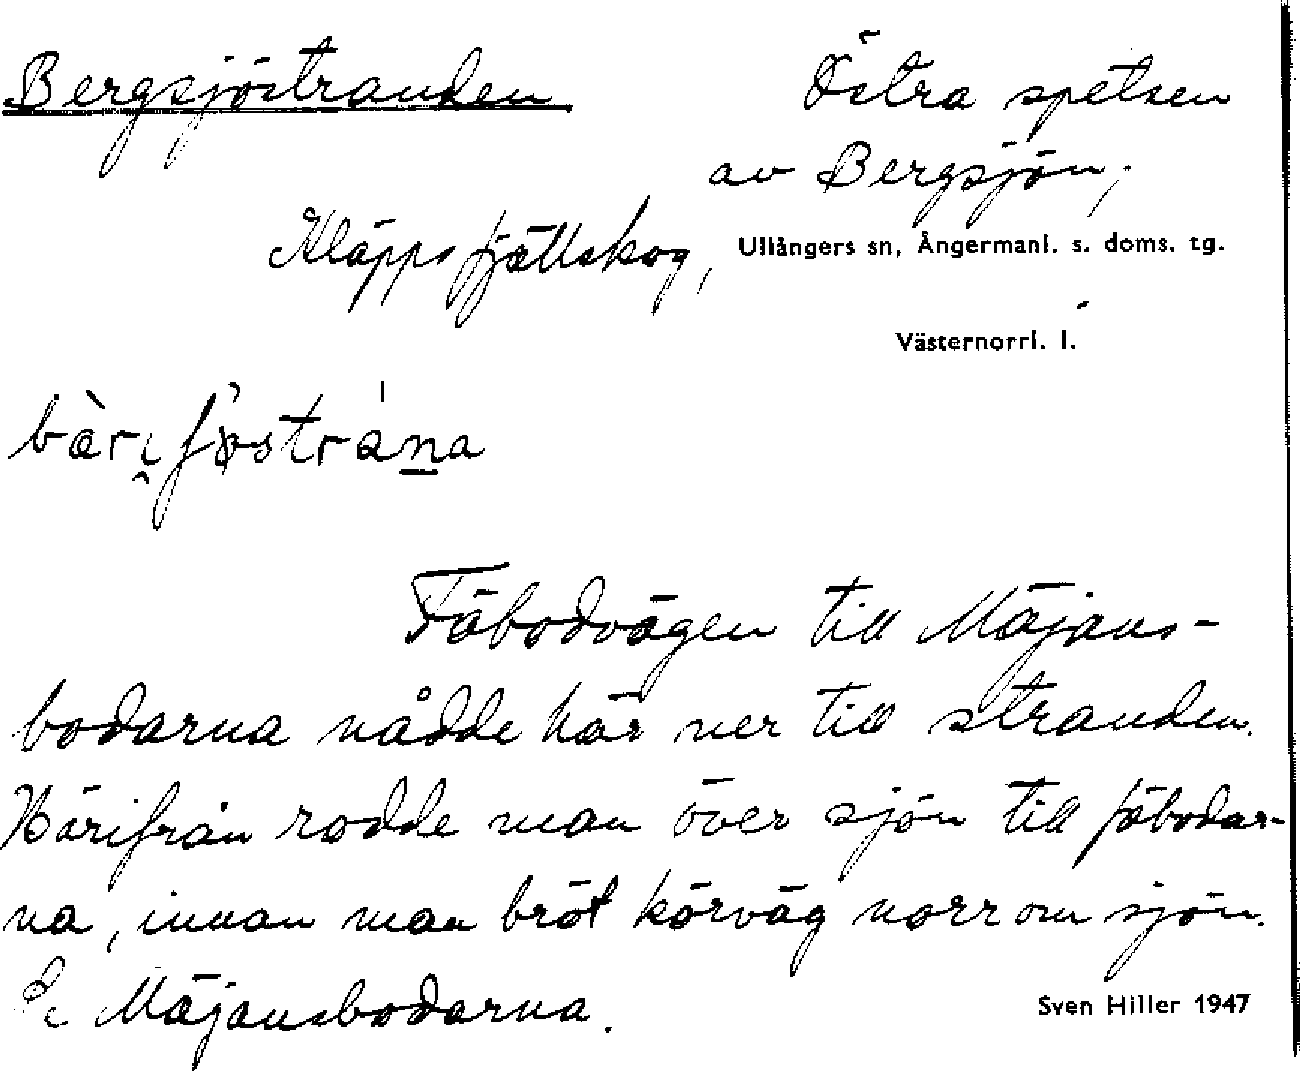 Bergsjöstranden
Östra spetsen
av Bergsjön,
Kläppsfjällskog,
Ullångers sn, Ångermanl. s. doms. tg.
Västernorrl. l.
Fäbodvägen till Mäjans-
bodarna nådde här ner till stranden.
Härifrån rodde man över sjön till fäbodar-
na, innan man bröt körväg norr om sjön.
Se Mäjansbodarna.
Sven Hiller 1947